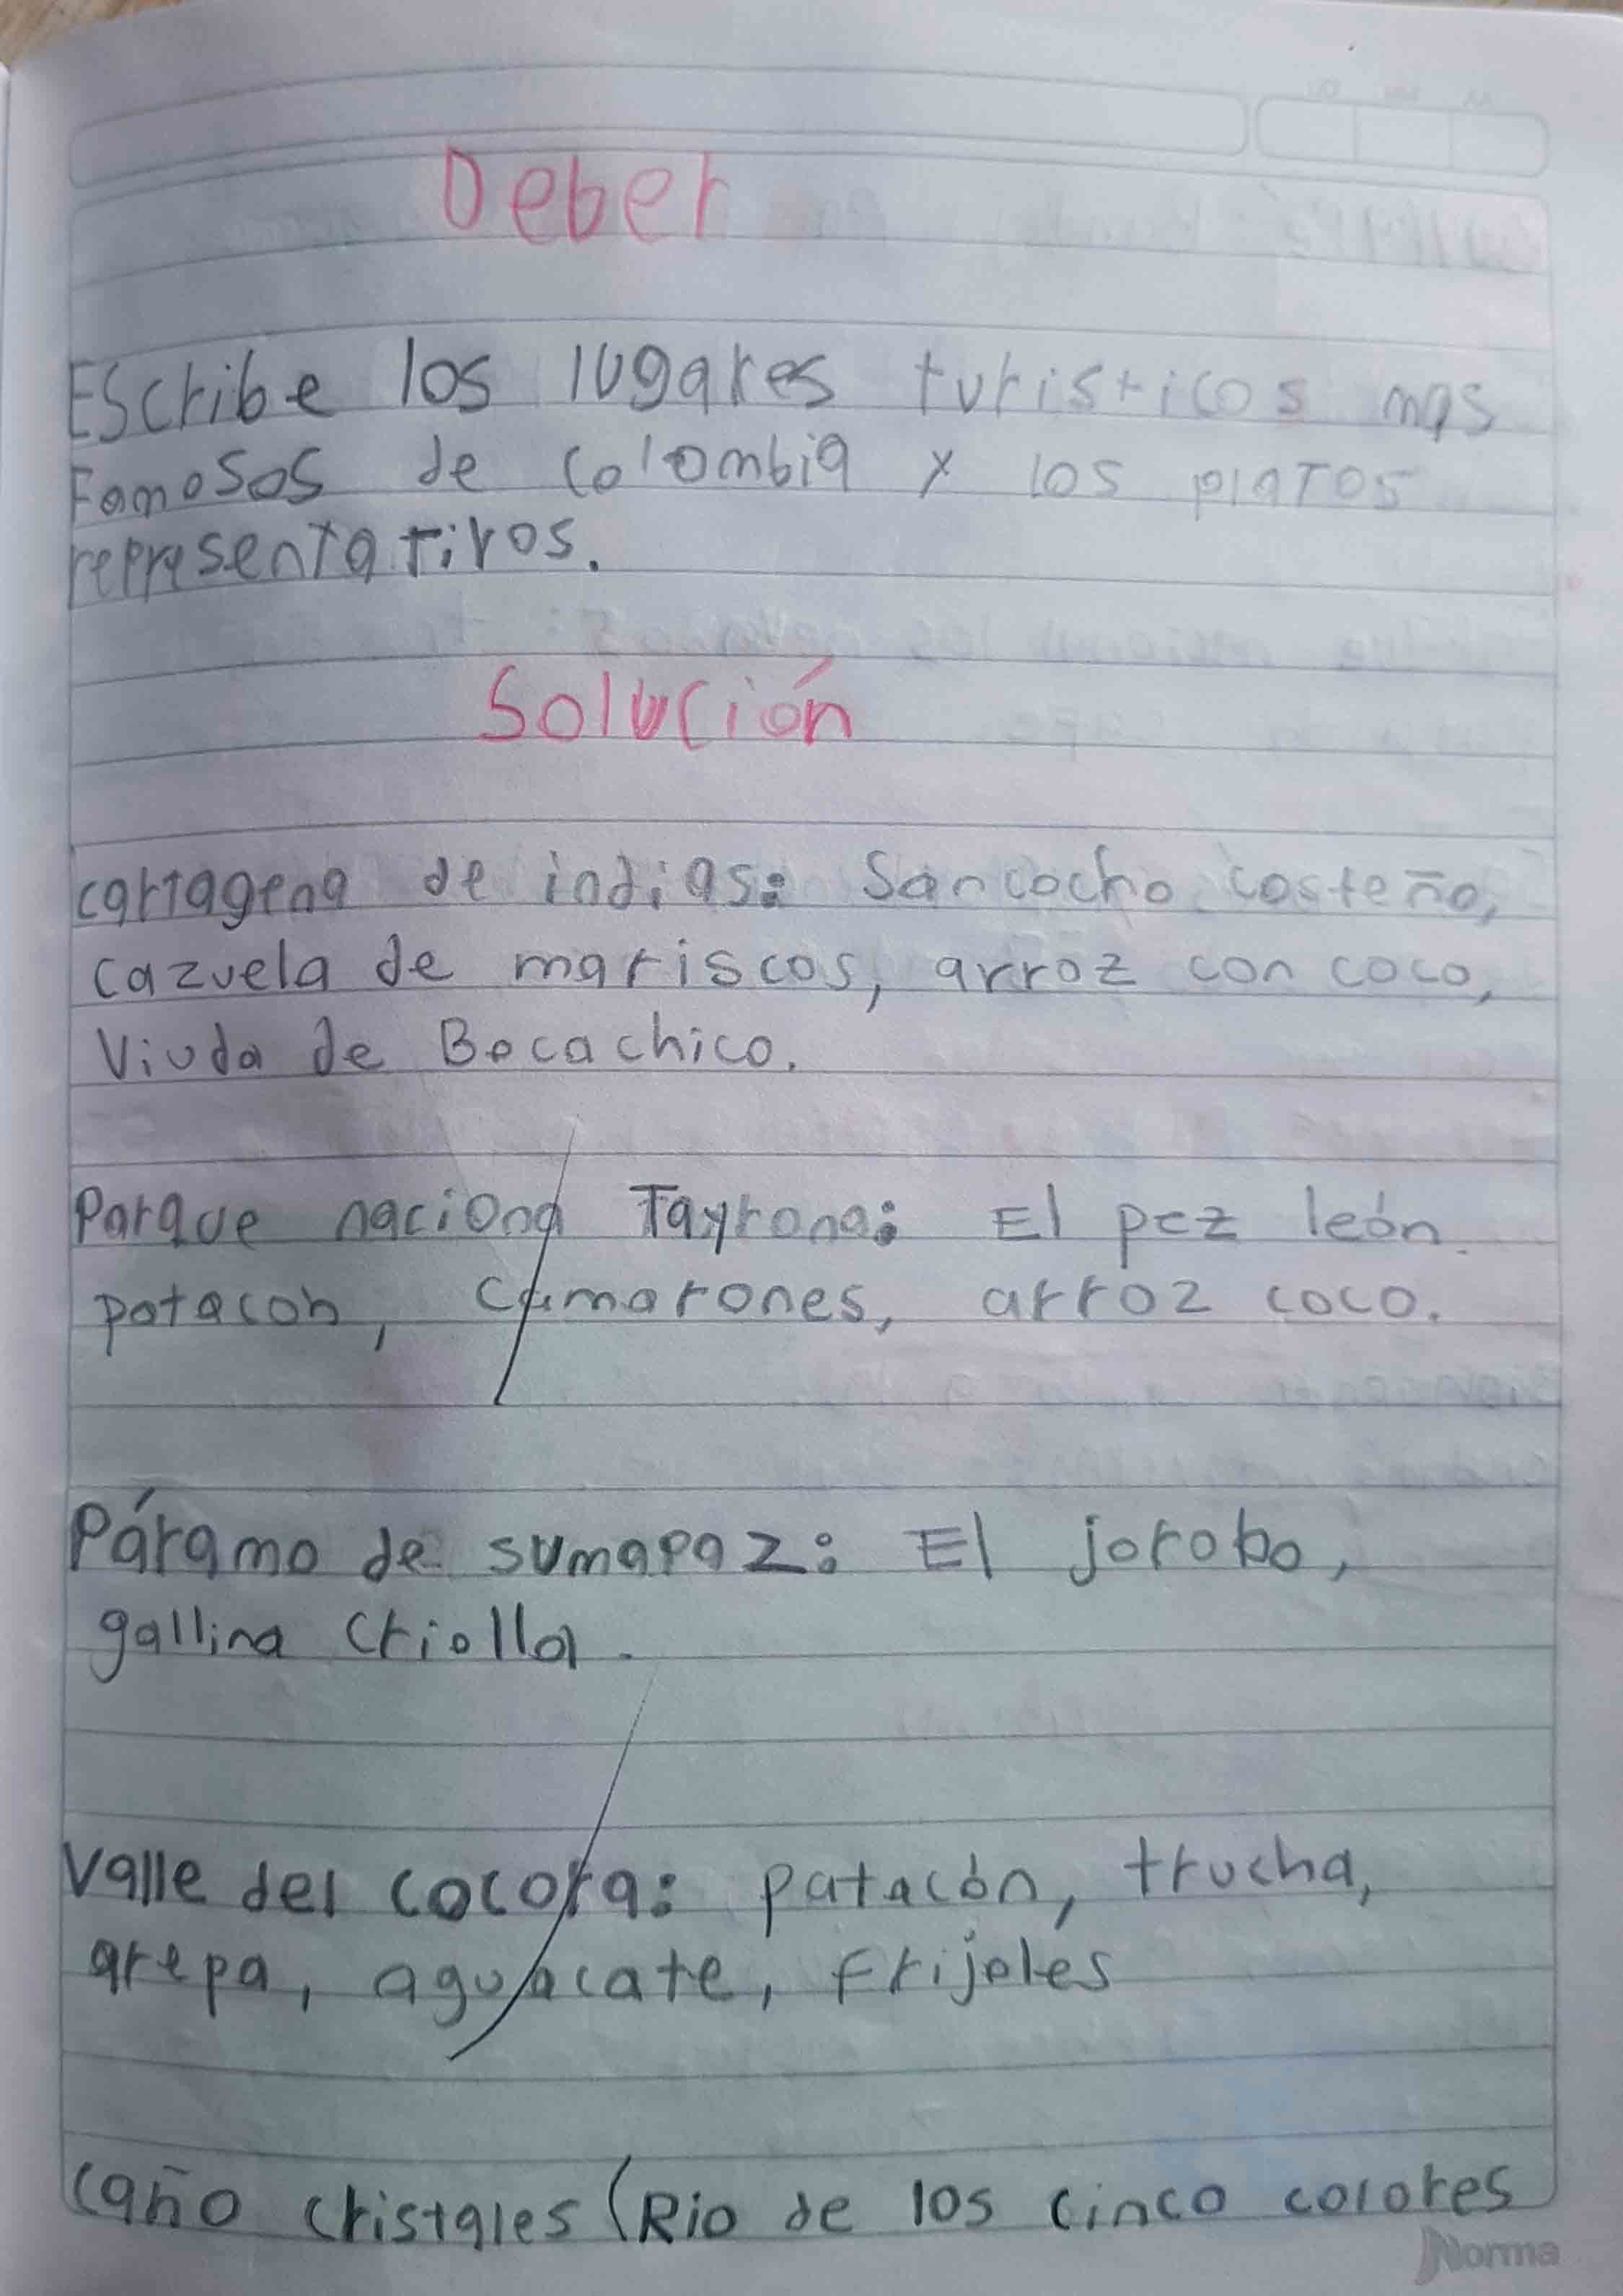 Deber
Escribe los lugares turisticos mas
Famosos de colombia y los platos
representativos.
Solución
cartagena de indias: Sancocho costeño,
cazuela de mariscos, arroz con coco,
Viuda de Bocachico.
Parque naciona Tayrona: El pez león.
patacon, camarones, arroz coco.
Páramo de sumapaz: El jorobo,
gallina criolla.
Valle del cocora: patacón, trucha,
arepa, aguacate, frijoles
caño cristales (Rio de los cinco colores
Norma